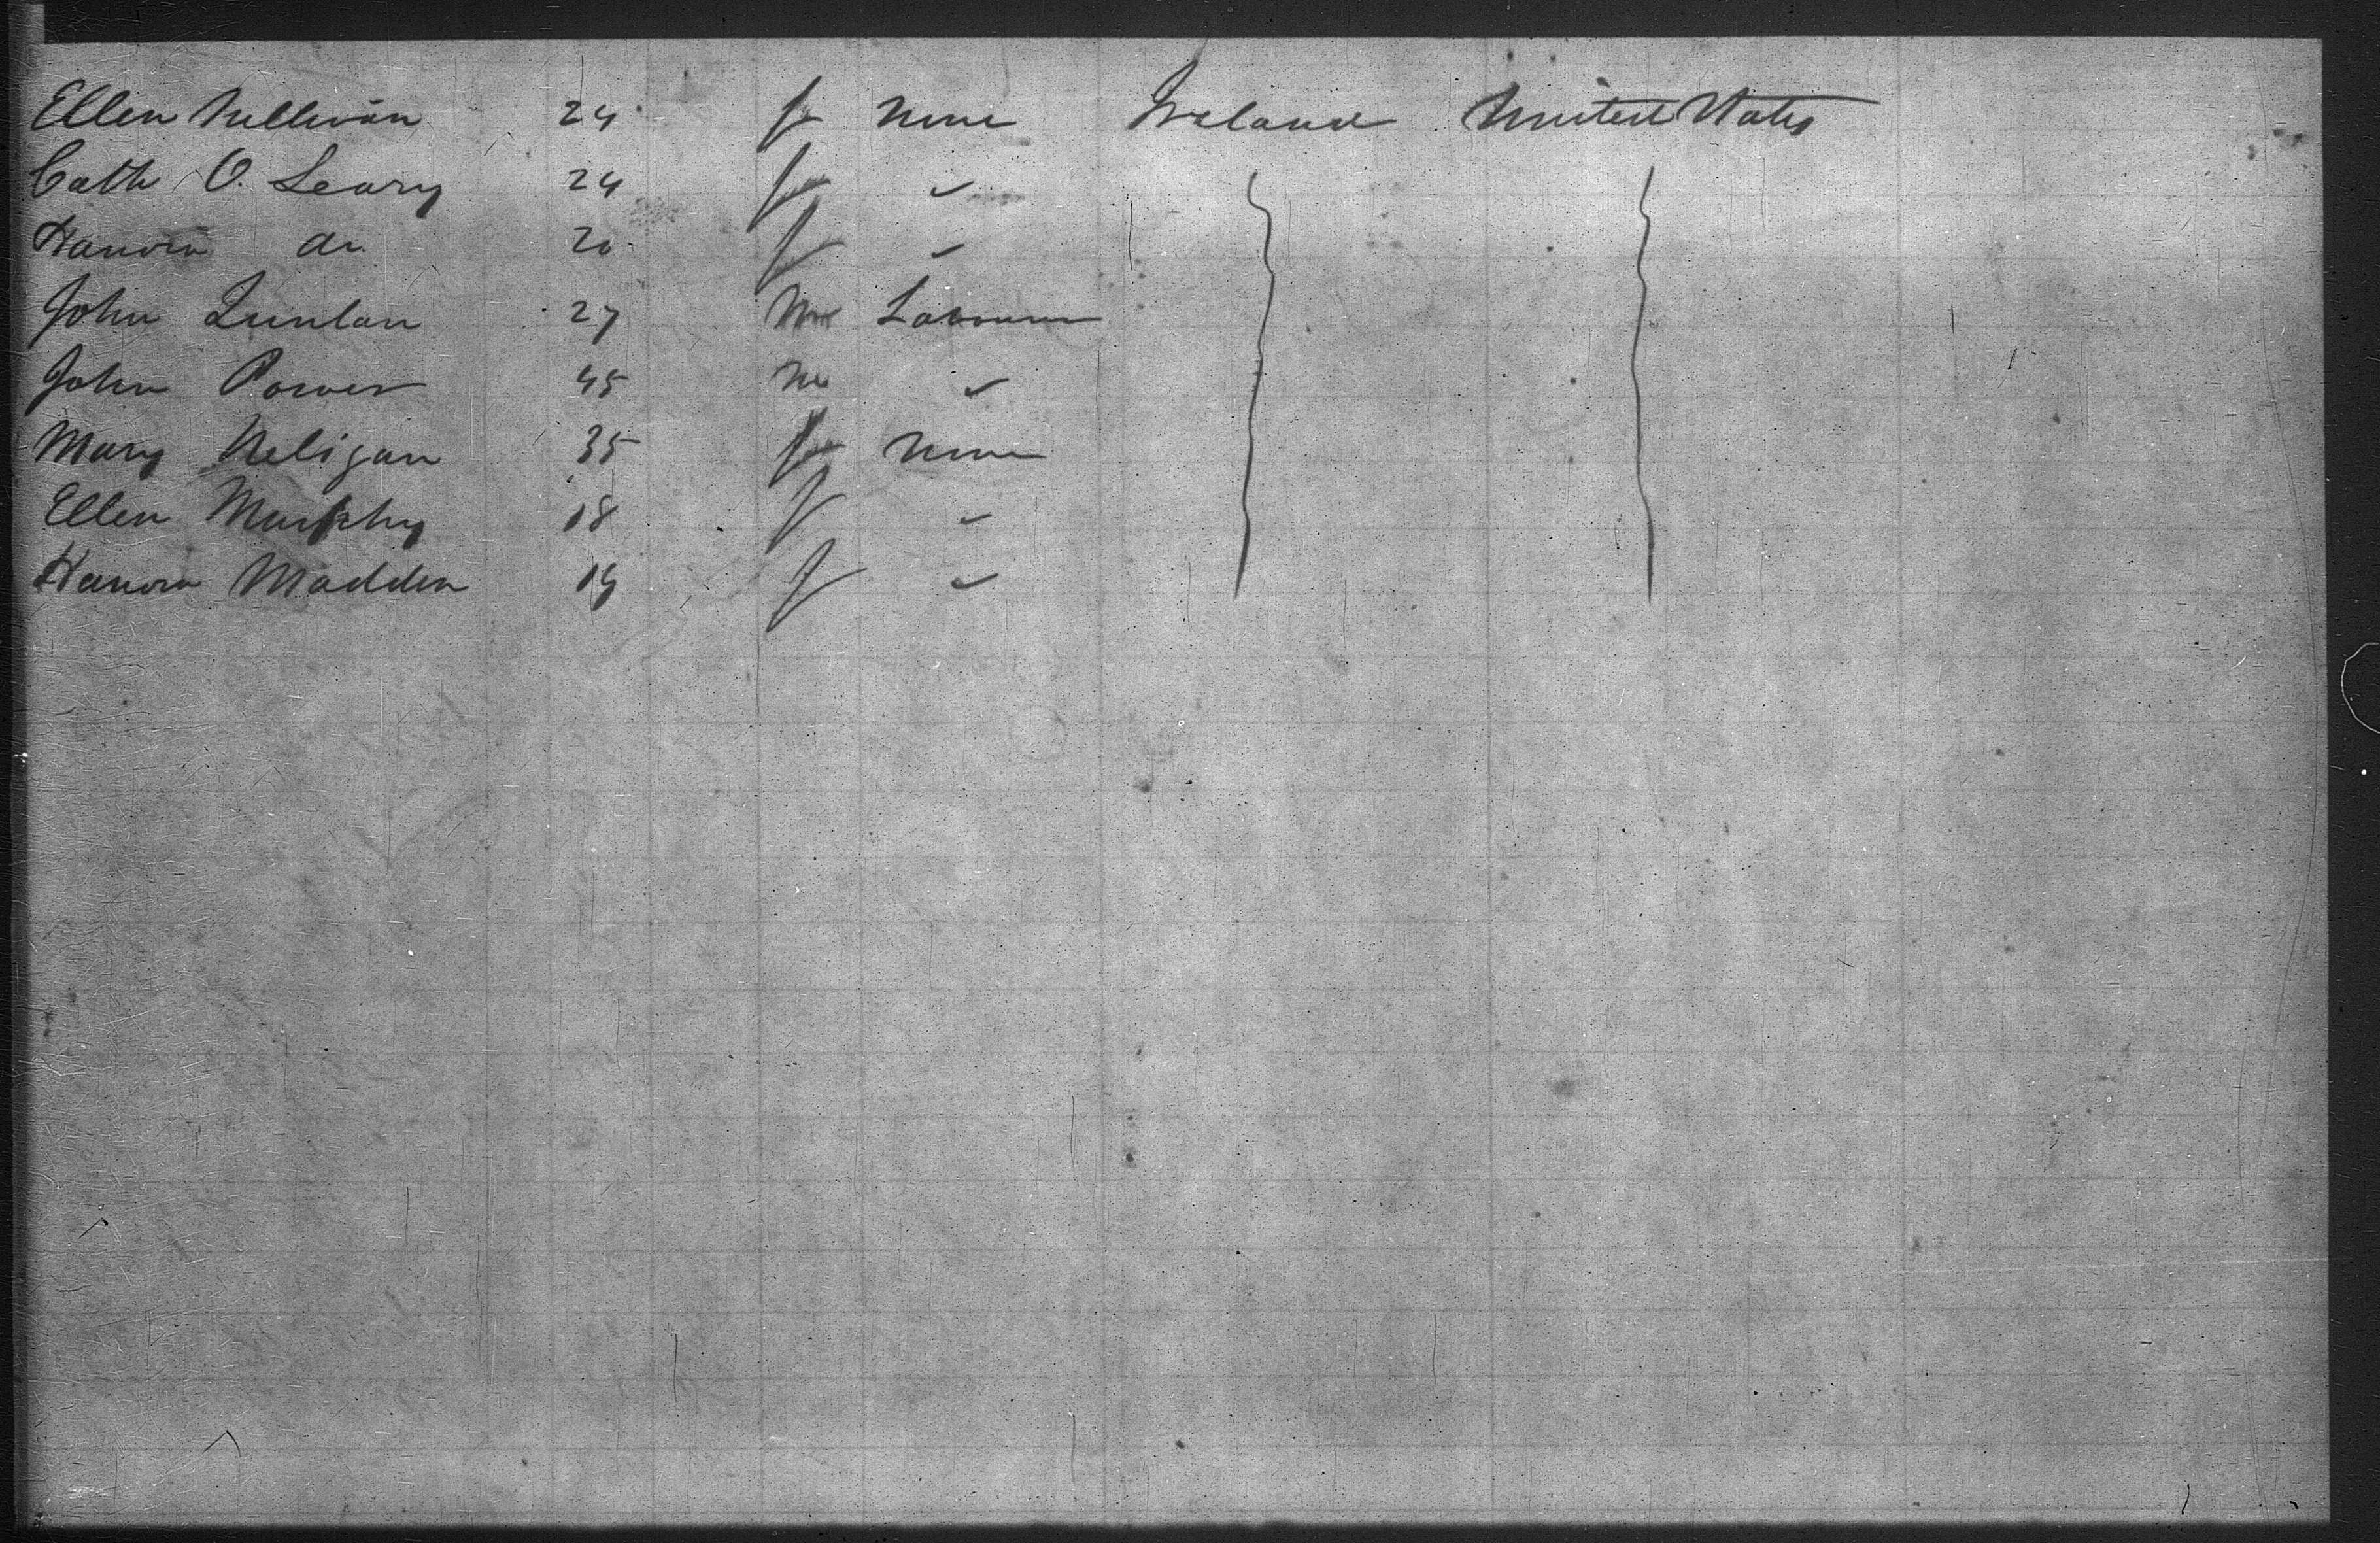 Ellen Sullivan 24 f None Ireland United States
Cath O. Leary 24 f ✓
Hanora do 20 f ✓
John Quinlan 27 M Labourer
John Power 45 M ✓
Mary Neligan 35 f None
Ellen Murphy 18 f ✓
Hanora Madden 19 f ✓